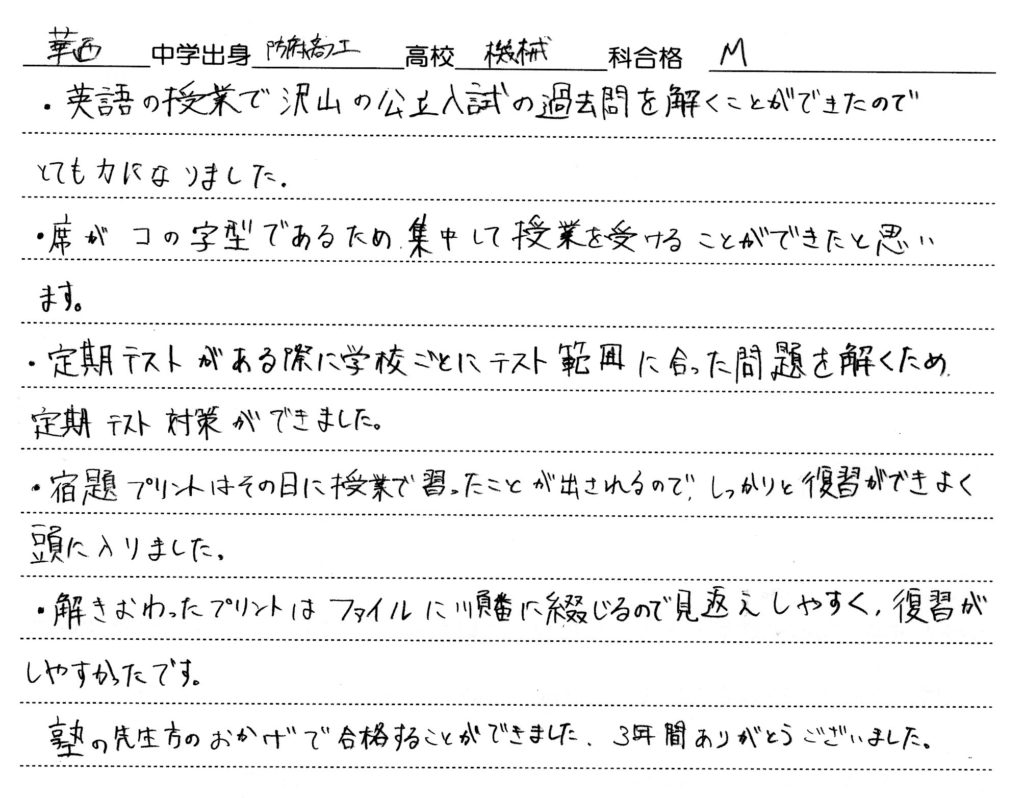 華西 中学出身 防府商工 高校 機械 科合格 M
・英語の授業で沢山の公立入試の過去問を解くことができたので
とても力になりました。
・席がコの字型であるため、集中して授業を受けることができたと思い
ます。
・定期テストがある際に学校ごとにテスト範囲に合った問題を解くため、
定期テスト対策ができました。
・宿題プリントはその日に授業で習ったことが出されるので、しっかりと復習ができよく
頭に入りました。
・解きおわったプリントはファイルに順番に綴じるので見返えしやすく、復習が
しやすかったです。
塾の先生方のおかげで合格することができました。3年間ありがとうございました。